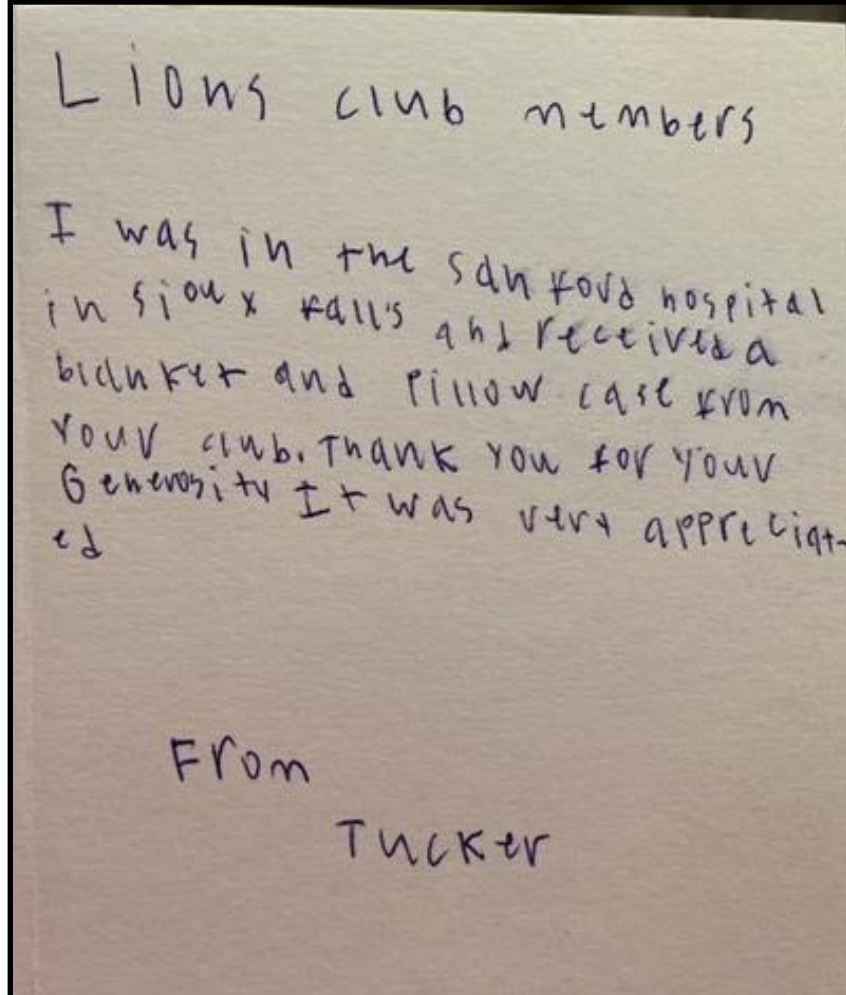 Lions club members
I was in the Sanford hospital
in Sioux Falls and received a
blanket and Pillow case from
Your club. Thank you for your
Generosity It was very appreciat-
ed
From
Tucker